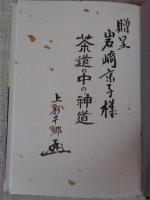 贈呈
岩崎京子様
茶道の中の神道
上杉千郷